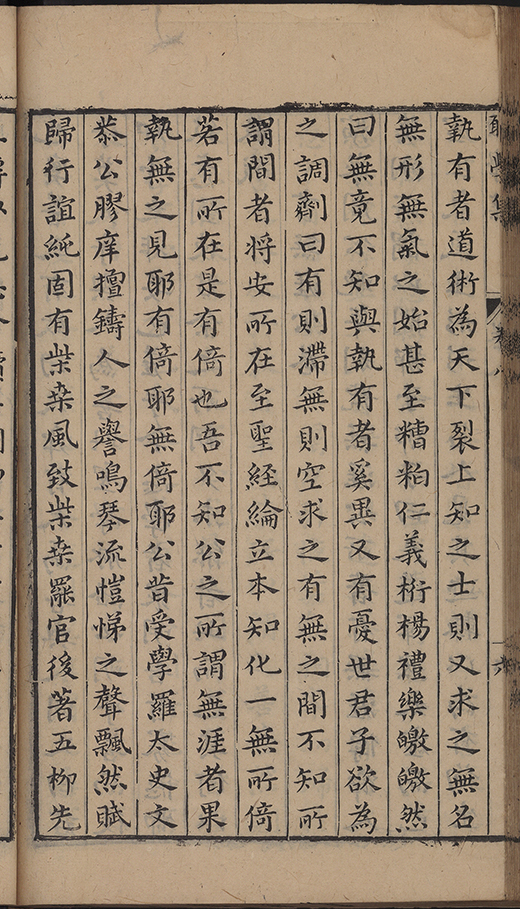 執有者道術為天下裂上知之士則又求之無名
無形無氣之始甚至糟粕仁義桁楊禮樂皦皦然
曰無竟不知與執有者奚異又有憂世君子欲為
之調劑曰有則滯無則空求之有無之間不知所
謂間者将安所在至聖經綸立本知化一無所倚
若有所在是有倚也吾不知公之所謂無涯者果
執無之見耶有倚耶無倚耶公昔受學羅太史文
恭公膠庠擅鑄人之譽鳴琴流愷悌之聲飄然賦
歸行誼純固有柴桑風致柴桑罷官後著五柳先